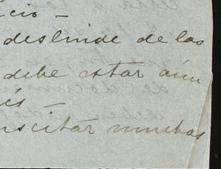 cio –
deslinde de las
debe estar aún
és –
uscitar muchas